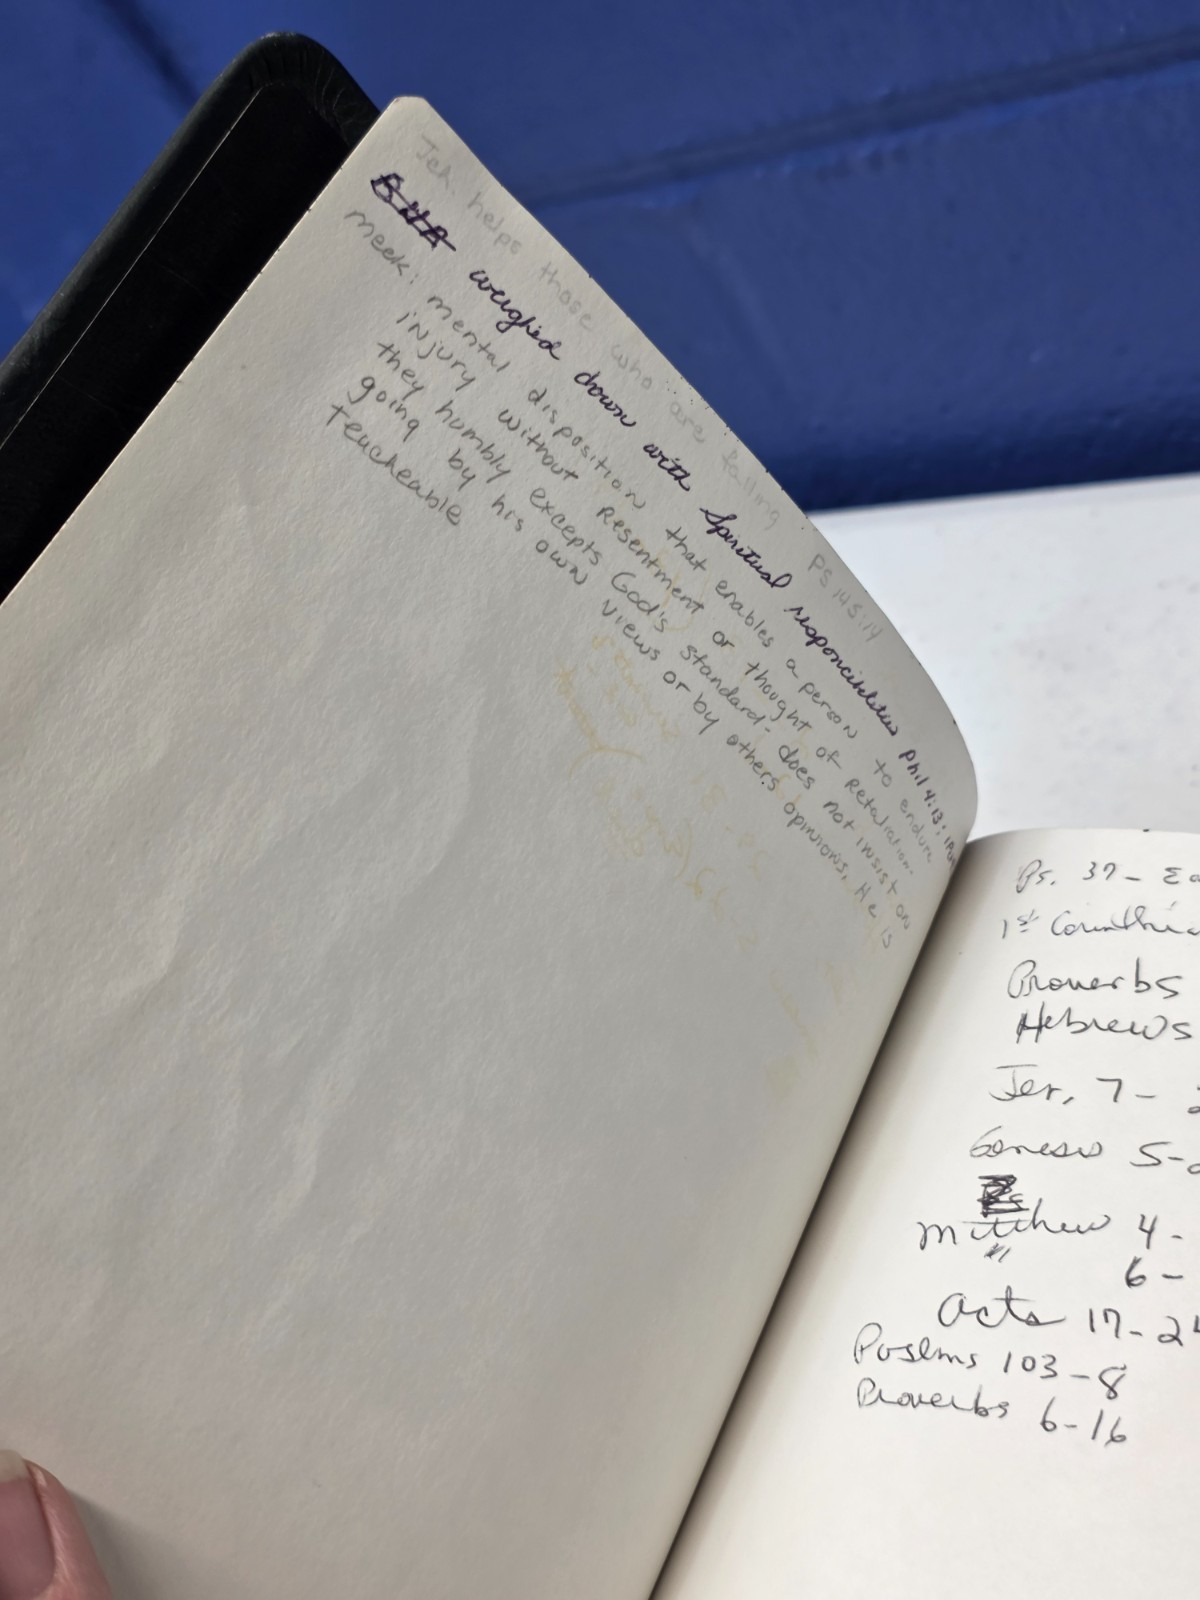 Jeh. helps those who are falling PS 145:14
weighed down with Spiritual responcibilities Phil 4:13;
meek; mental disposition that enables a person to endure
injury without resentment or thought of retaliation.
they humbly excepts God's standard- does not insist on
going by his own views or by others opinions. He is
teacheable
Ps. 37-
1st
Proverbs
Hebrews
Jer. 7-
Genesis 5-
Matthew 4-
6-
Acts 17-24
Poslms 103-8
Proverbs 6-16